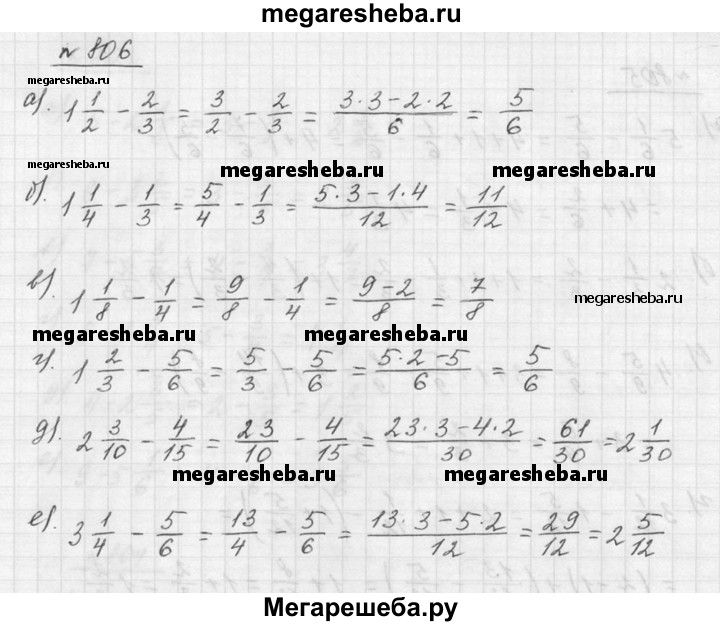 megaresheba.ru
№ 806
megaresheba.ru
а). 1 1/2 − 2/3 = 3/2 − 2/3 = (3·3−2·2)/6 = 5/6
megaresheba.ru megaresheba.ru
б). 1 1/4 − 1/3 = 5/4 − 1/3 = (5·3−1·4)/12 = 11/12
в). 1 1/8 − 1/4 = 9/8 − 1/4 = (9−2)/8 = 7/8
megaresheba.ru
megaresheba.ru megaresheba.ru
г). 1 2/3 − 5/6 = 5/3 − 5/6 = (5·2−5)/6 = 5/6
д). 2 3/10 − 4/15 = 23/10 − 4/15 = (23·3−4·2)/30 = 61/30 = 2 1/30
megaresheba.ru megaresheba.ru
е). 3 1/4 − 5/6 = 13/4 − 5/6 = (13·3−5·2)/12 = 29/12 = 2 5/12
Мегарешеба.ру